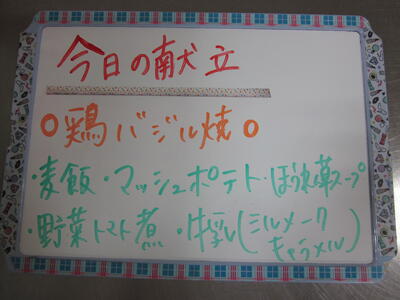 今日の献立
○鶏バジル焼○
・麦飯・マッシュポテト・ほうれん草スープ
・野菜トマト煮・牛乳(ミルメーク
キャラメル)